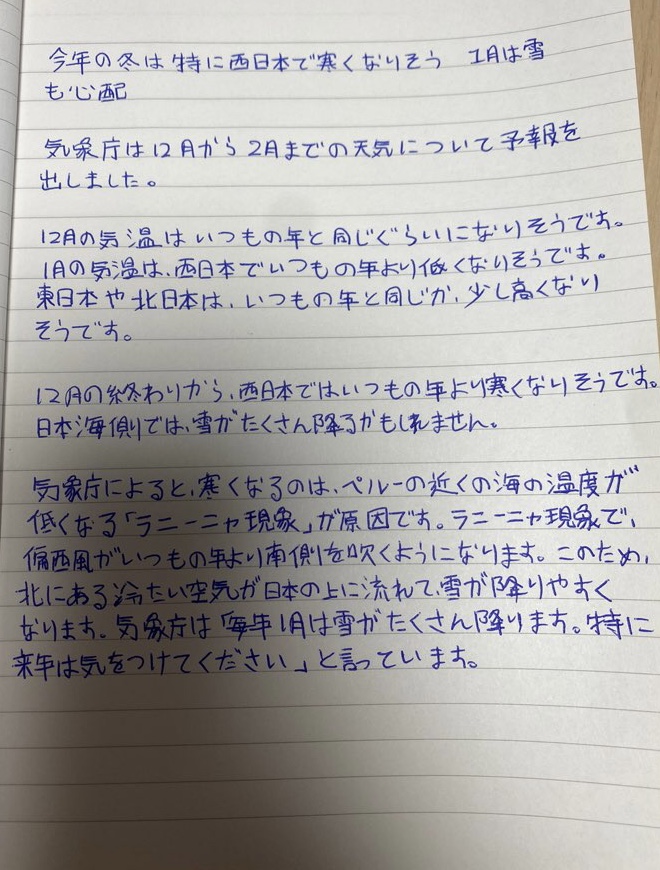 今年の冬は特に西日本で寒くなりそう　1月は雪
も心配
気象庁は12月から2月までの天気について予報を
出しました。
12月の気温はいつもの年と同じぐらいになりそうです。
1月の気温は、西日本でいつもの年より低くなりそうです。
東日本や北日本は、いつもの年と同じか、少し高くなり
そうです。
12月の終わりから、西日本ではいつもの年より寒くなりそうです。
日本海側では、雪がたくさん降るかもしれません。
気象庁によると、寒くなるのは、ペルーの近くの海の温度が
低くなる「ラニーニャ現象」が原因です。ラニーニャ現象で、
偏西風がいつもの年より南側を吹くようになります。このため、
北にある冷たい空気が日本の上に流れて、雪が降りやすく
なります。気象庁は「毎年1月は雪がたくさん降ります。特に
来年は気をつけてください」と言っています。